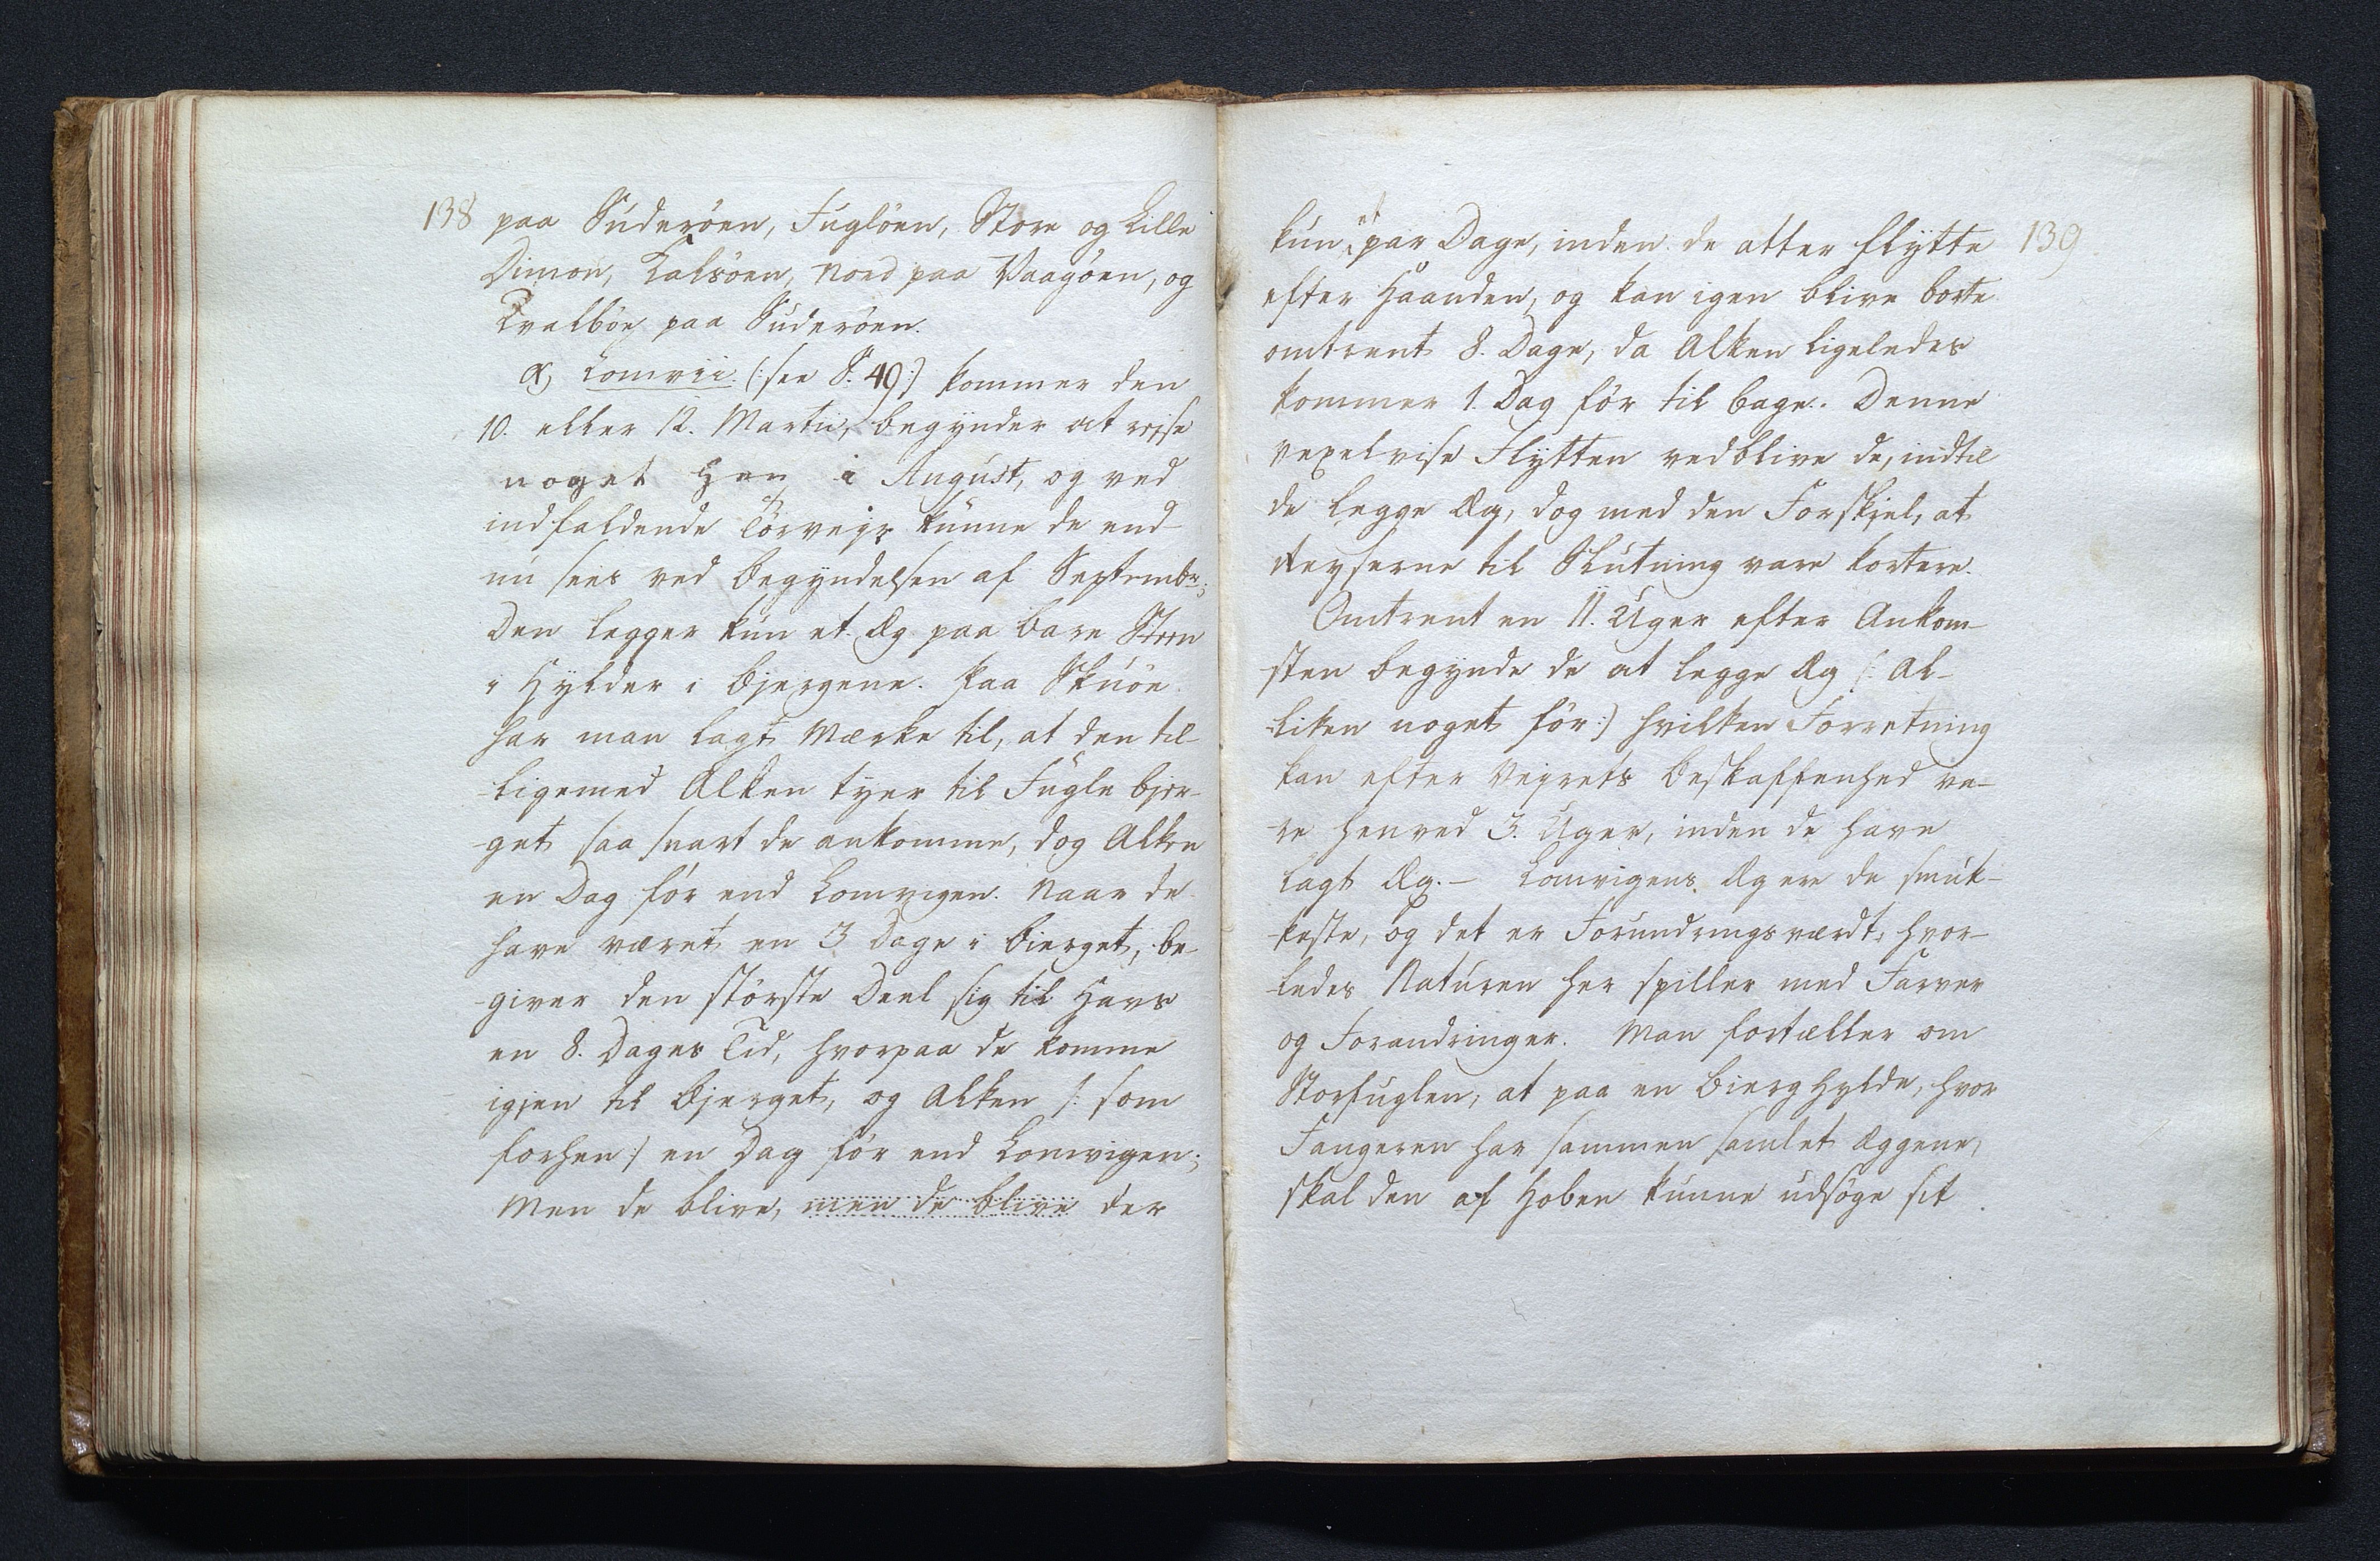 138 paa Suderöen, Fuglöen, Store og Lille
Dimon, Kalsöen, Nord paa Vaagöen, og
Qvalböe paa Suderöen.
α, Lomvii. (: see S. 49 :) kommer den
10. eller 12. Martii, begynder at reise
noget hen i August, og ved
indfaldende Törveir kunne de end-
nu sees ved Begyndelsen af Septembr;
Den legger kun et Æg paa bare Steen
i Hylder i Bjergene. Paa Skuöe
har man lagt Mærke til, at den til-
-ligemed Alken tyer til Fugle bjer-
-get saa snart de ankomme, dog Alken
en Dag för end Lomvigen. Naar de
have været en 3 Dage i Bierget, be-
-giver den störste Deel sig til Havs
en 8. Dages Tid, hvorpaa de komme
igjen til Bjerget, og Alken /: som
forhen :/ en Dag för end Lomvigen;
Men de blive, men de blive der
kun et par Dage, inden de atter flytte 139
efter Haanden, og kan igen blive borte
omtrent 8. Dage, da Alken ligeledes
kommer 1. Dag för til bage. Denne
vexelvise Flytten vedblive de, indtil
de legge Æg, dog med den Forskjel, at
Reyserne til Slutning vare kortere.
Omtrent en 11. Uger efter Ankom-
-sten begynde de at legge Æg /: Al-
-liken noget för :/ hvilken Forretning
kan efter Veirets Beskaffenhed ve-
-re henved 3. Uger, inden de have
lagt Æg. - Lomvigens Æg ere de smuk-
-keste, og det er Forundringsværdt, hvor-
-ledes Naturen her spiller med Farver
og Forandringer. Man fortæller om
Storfuglen, at paa en Bierg Hylde, hvor
Fangeren har sammen samlet Æggene,
skal den af Hoben kunne udsöge sit